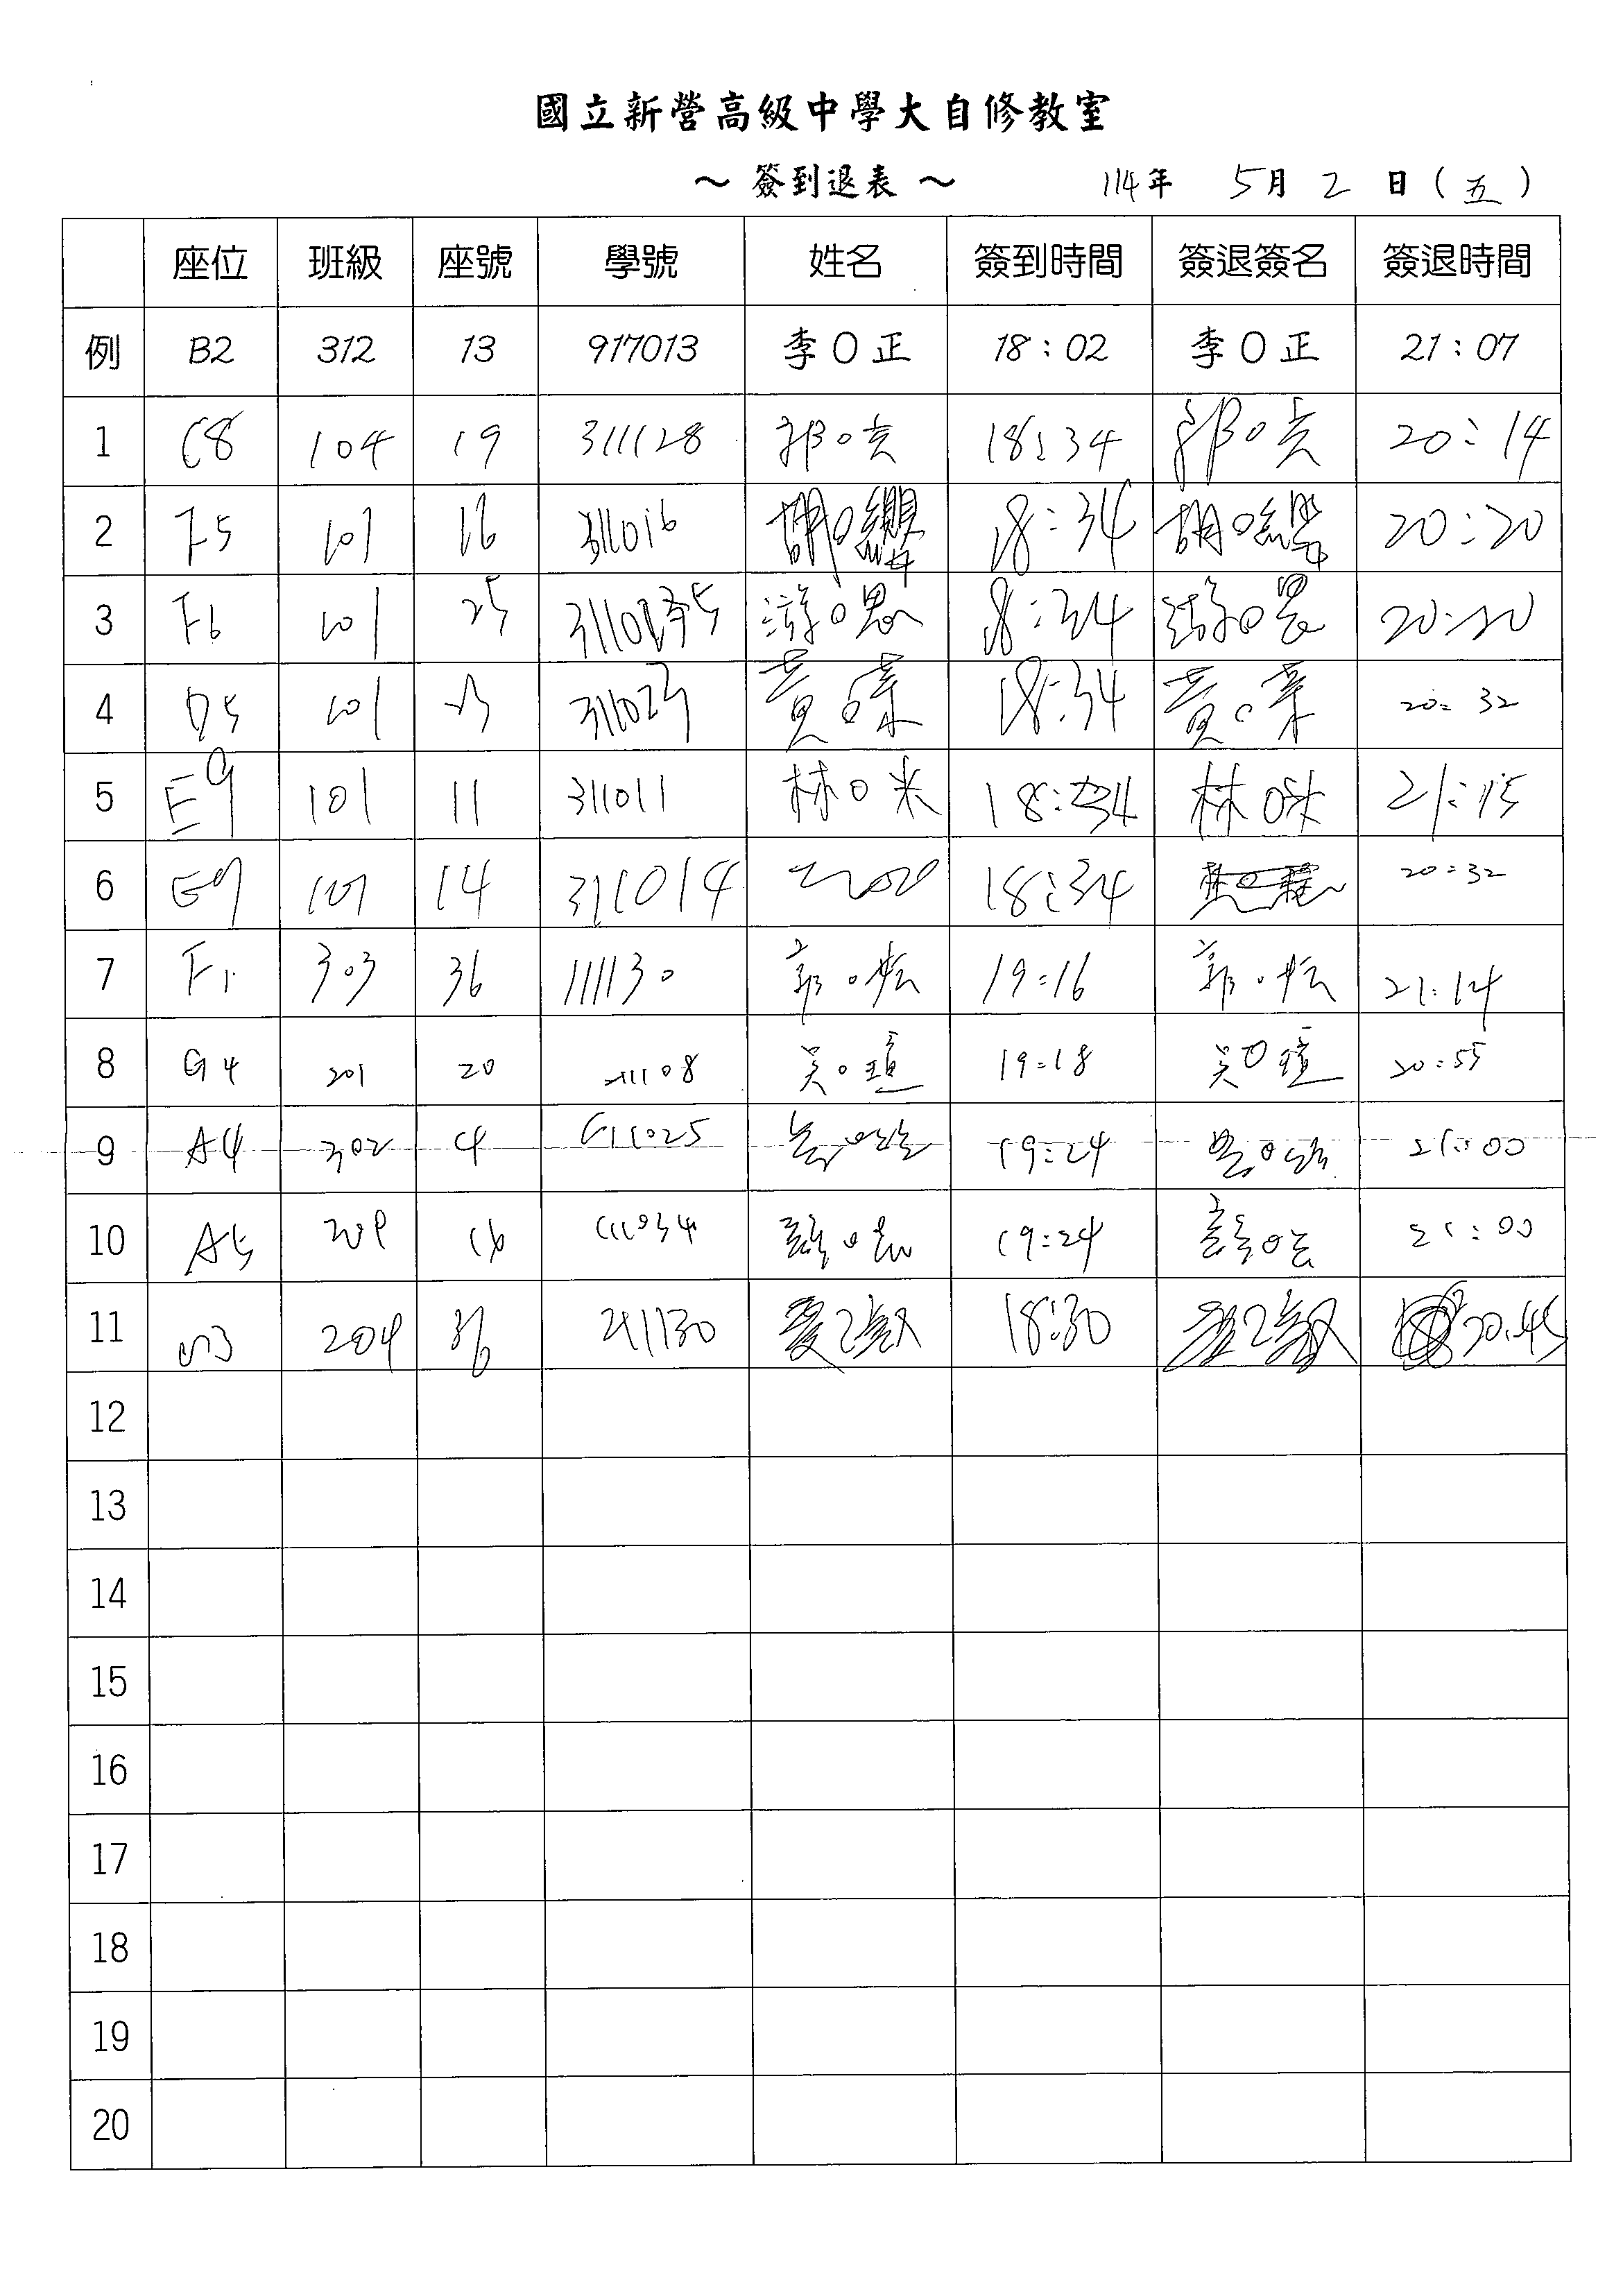 國立新營高級中學大自修教室
～ 簽到退表 ～ 114年 5月 2 日（五）
座位 班級 座號 學號 姓名 簽到時間 簽退簽名 簽退時間
例 B2 312 13 917013 李O正 18：02 李O正 21：07
1 C8 104 19 311128 郭O 18:34 郭O 20:14
2 F5 101 16 311016 胡O纓 18:34 胡O纓 20:20
3 F6 101 25 游O恩 18:34 游O恩 20:20
4 D5 101 23 311023 黃O 18:34 黃O 20:32
5 E9 101 11 311011 林O 18:34 林O 21:15
6 101 14 311014 18:34 20:32
7 F1 303 36 111130 郭O 19:16 郭O 21:14
8 G4 201 20 211108 吳O瑄 19:18 吳O瑄 20:55
9 A4 302 4 111025 19:24 21:00
10 A5 16 111034 19:24 21:00
11 204 36 211130 18:30 20:45
12
13
14
15
16
17
18
19
20